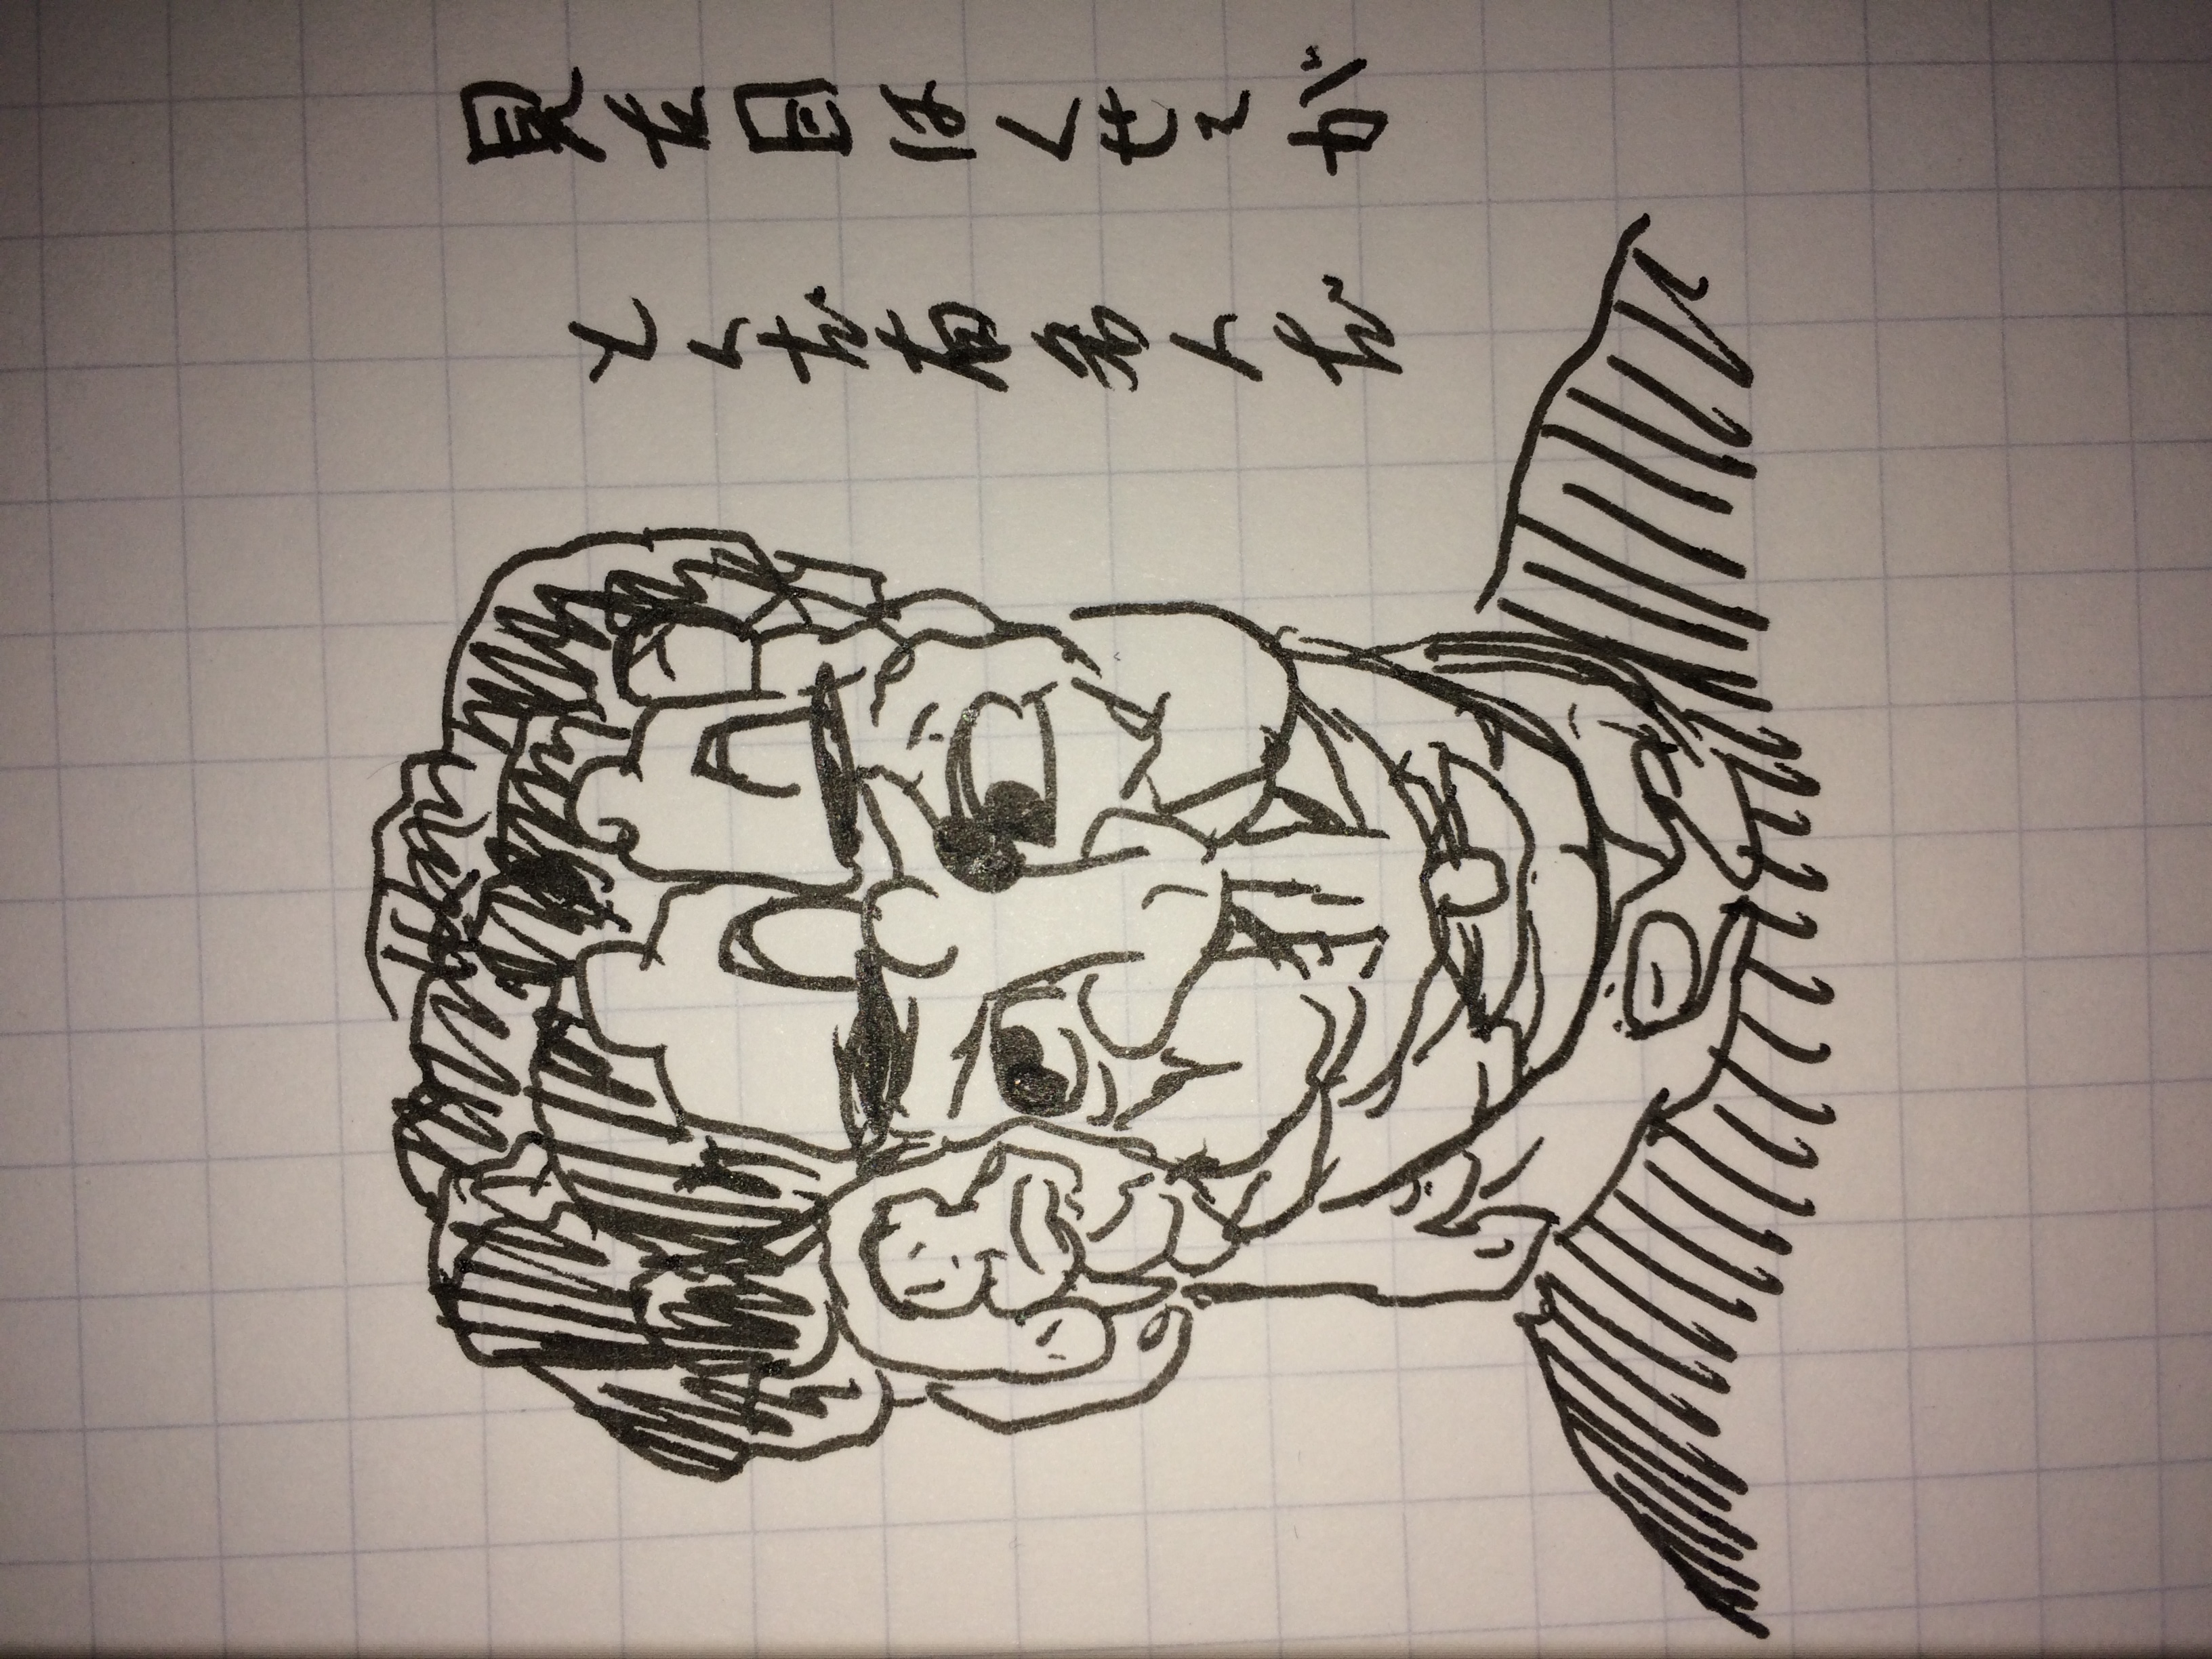 見た目はくせえが
とんだ有名人だ